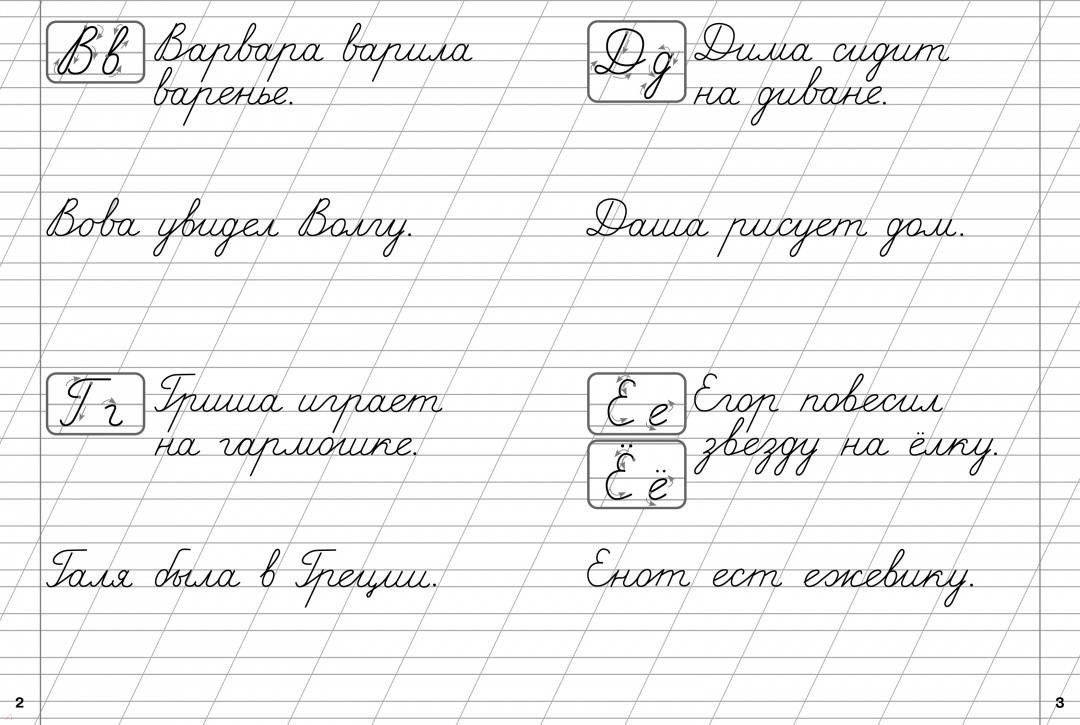 Вв Варвара варила
варенье.
Вова увидел Волгу.
Гг Гриша играет
на гармошке.
Галя была в Греции.
2
Дд Дима сидит
на диване.
Даша рисует дом.
Ее Егор повесил
Ёё звезду на ёлку.
Енот ест ежевику.
3